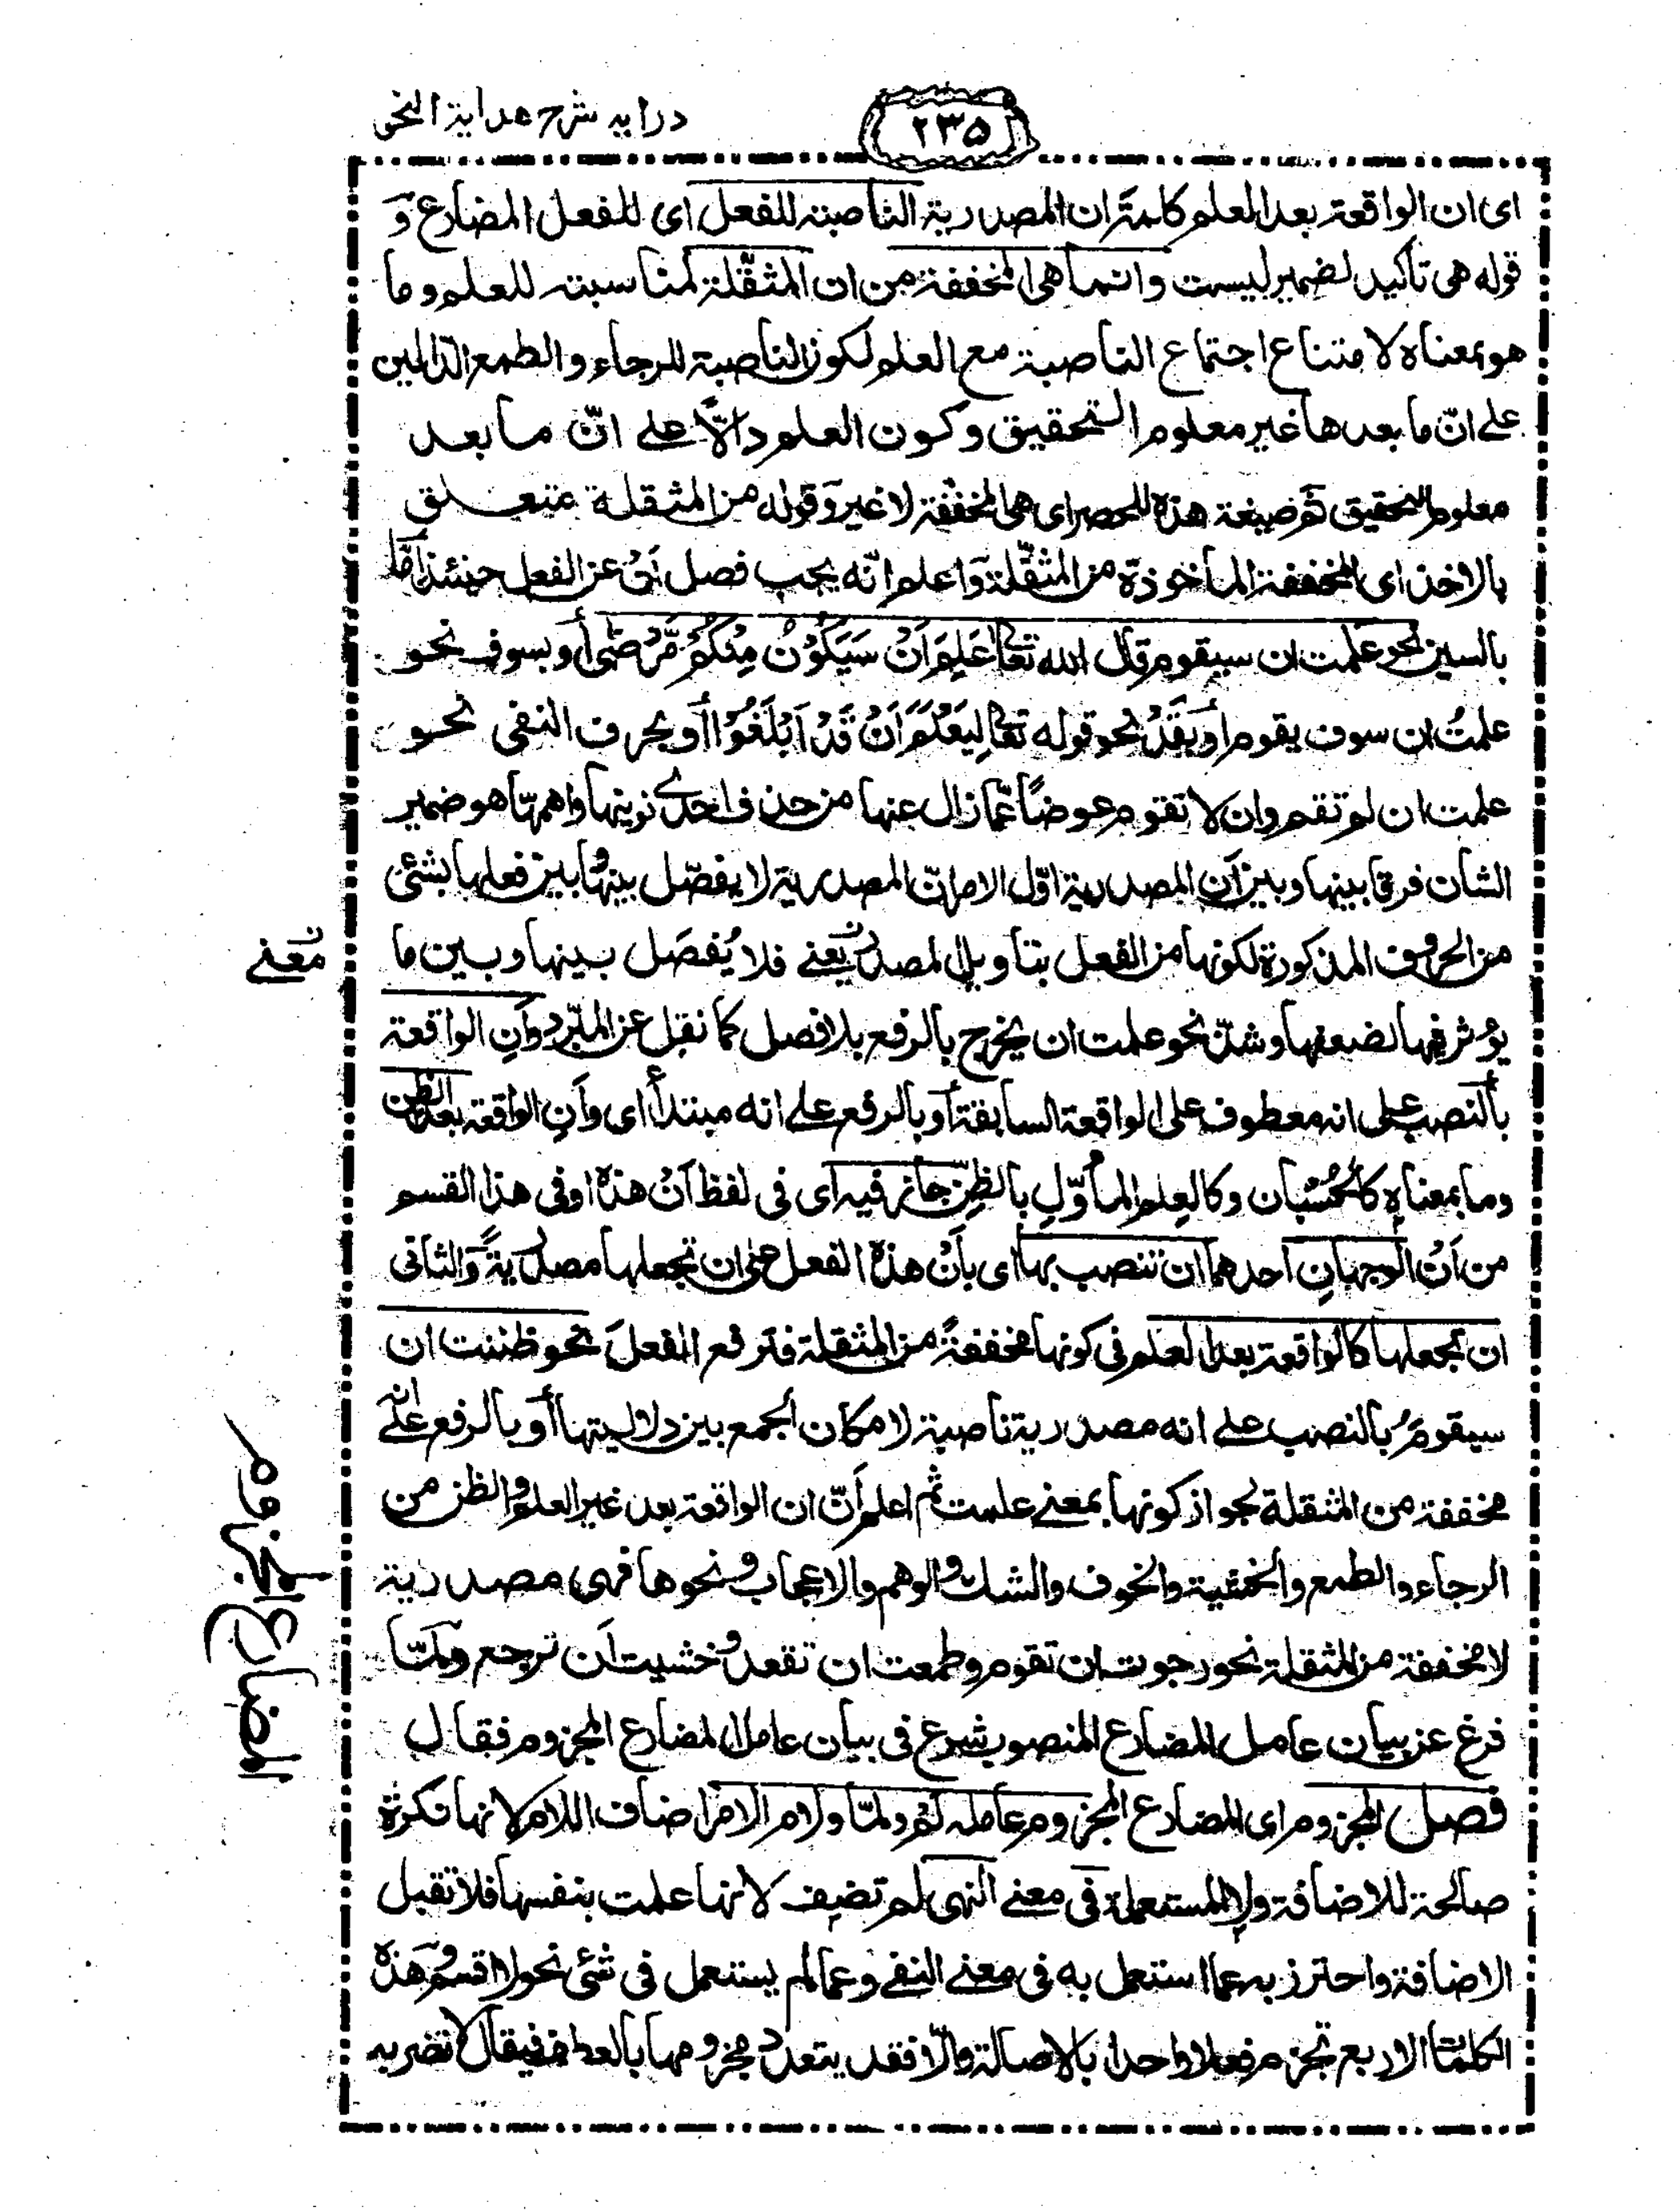 درايه شرح هداية النحو
٢٣٥
اى ان الواقعة بعد العلم كلمة ان المصدرية الناصبة للفعل اى للفعل المضارع و
قوله هى تأكيد لضمير ليست وانما هى المخففة من ان المثقّلة لمناسبته للعلم وما
هو بمعناه لامتناع اجتماع الناصبة مع العلم لكون الناصبة للرجاء والطمع الدّالين
على انّ ما بعدها غير معلوم التحقيق وكون العلم دالّاً على انّ ما بعد
معلوم التحقيق ثم صيغة هذه للحصر اى هى المخففة لا غير وقوله من المثقلة متعلق
بالاخذ اى المخففة المأخوذة من المثقّلة واعلم انّه يجب فصل اَنْ عن الفعل حينئذ امّا
بالسين نحو علمت ان سيقوم قال الله تعالى عَلِمَ اَنْ سَيَكُوْنُ مِنْكُمْ مَّرْضٰى أو بسوف نحو
علمتُ ان سوف يقوم أو بِقَدْ نحو قوله تعالى لِيَعْلَمَ اَنْ قَدْ اَبْلَغُوْا أو بحرف النفى نحو
علمت ان لم تقم وان لا تقوم عوضًا عمّا زال عنها من حذف احدى نونيها واسمها هو ضمير
الشأن فرقا بينها وبين اَن المصدرية اوّل الامر انّ المصدرية لا يفصّل بينها وبين فعلها بشئ
من الحروف المذكورة لكونها من الفعل بتاويل المصدر يعنى فلا يُفصَل بينها وبين ما
معنے
يؤثر فيها لضعفها وشذّ نحو علمت ان يخرج بالرفع بلا فصل كما نقل عن المبرّد وأنِ الواقعة
بالنصب على انه معطوف على الواقعة السابقة أو بالرفع على انه مبتدأ اى وأنِ الواقعة بعد الظن
وما بمعناه كالحُسْبَان وكالعِلم المأوّلِ بالظنّ جاز فيه اى فى لفظ اَنْ هذه او فى هذا القسم
من اَنْ الوجهانِ احدهما ان تنصب بها اى باَنْ هذه الفعل على ان تجعلها مصدريةً والثانى
ان تجعلها كالواقعة بعد العلم فى كونها مخففةً من المثقلة فترفع الفعلَ نحو ظننت ان
سيقومُ بالنصب على انه مصدرية ناصبة لامكان الجمع بين دلاليتها أو بالرفع على انه
مخففة من المثقلة لجواز كونها بمعنى علمت ثم اعلم اَنّ ان الواقعة بعد غير العلم والظن من
الرجاء والطمع والخشية والخوف والشك والوهم والاعجاب ونحوها فهى مصدرية
لا مخففة من المثقلة نحو رجوت ان تقوم وطمعت ان تقعد وخشيت اَن ترجع ولمّا
فرغ عن بيان عامل المضارع المنصوب شرع فى بيان عامل المضارع المجزوم فقال
المضارع المجزوم
فصل المجزوم اى المضارع المجزوم عامله لَمْ ولمّا ولام الامر اضاف اللام لانها نكرة
صالحة للاضافة ولا المستعملة فى معنے النهى لم تضيف لانها علمت بنفسها فلا تقبل
الاضافة واحترز به عما استعمل به فى معنے النفے وعما لم يستعمل فى شئ نحو لا اقسم وهذه
الكلمات الاربع تجزم فعلا واحدا بالاصالة والّا فقد يتعدد مجزومها بالعطف فيقال لا تضرب